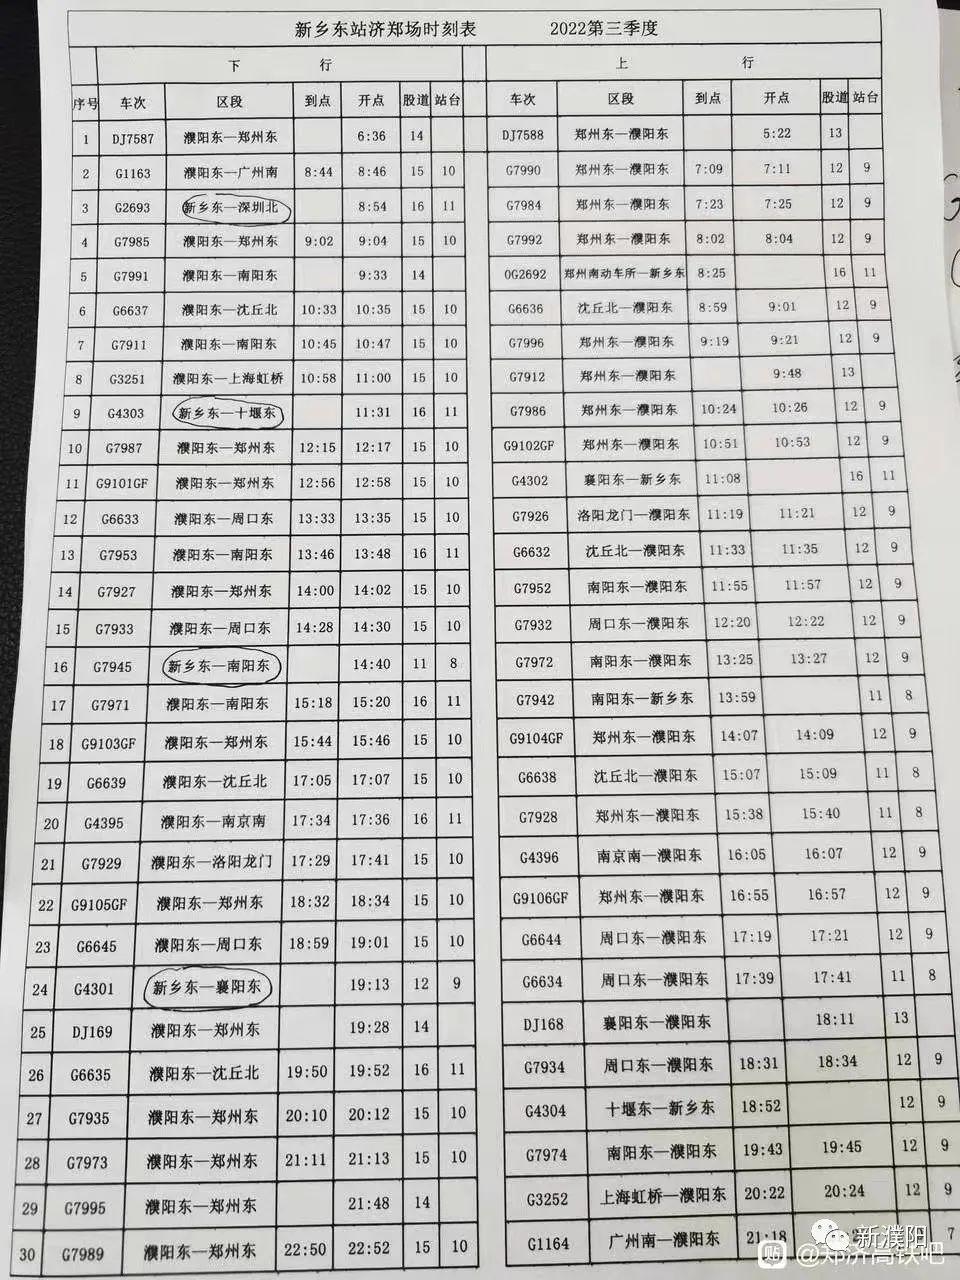 新乡东站济郑场时刻表 2022第三季度
下 行 上 行
序号 车次 区段 到点 开点 股道 站台 车次 区段 到点 开点 股道 站台
1 DJ7587 濮阳东—郑州东 6:36 14 DJ7588 郑州东—濮阳东 5:22 13
2 G1163 濮阳东—广州南 8:44 8:46 15 10 G7990 郑州东—濮阳东 7:09 7:11 12 9
3 G2693 新乡东—深圳北 8:54 16 11 G7984 郑州东—濮阳东 7:23 7:25 12 9
4 G7985 濮阳东—郑州东 9:02 9:04 15 10 G7992 郑州东—濮阳东 8:02 8:04 12 9
5 G7991 濮阳东—南阳东 9:33 14 0G2692 郑州南动车所—新乡东 8:25 16 11
6 G6637 濮阳东—沈丘北 10:33 10:35 15 10 G6636 沈丘北—濮阳东 8:59 9:01 12 9
7 G7911 濮阳东—南阳东 10:45 10:47 15 10 G7996 郑州东—濮阳东 9:19 9:21 12 9
8 G3251 濮阳东—上海虹桥 10:58 11:00 15 10 G7912 郑州东—濮阳东 9:48 13
9 G4303 新乡东—十堰东 11:31 16 11 G7986 郑州东—濮阳东 10:24 10:26 12 9
10 G7987 濮阳东—郑州东 12:15 12:17 15 10 G9102GF 郑州东—濮阳东 10:51 10:53 12 9
11 G9101GF 濮阳东—郑州东 12:56 12:58 15 10 G4302 襄阳东—新乡东 11:08 16 11
12 G6633 濮阳东—周口东 13:33 13:35 15 10 G7926 洛阳龙门—濮阳东 11:19 11:21 12 9
13 G7953 濮阳东—南阳东 13:46 13:48 16 11 G6632 沈丘北—濮阳东 11:33 11:35 12 9
14 G7927 濮阳东—郑州东 14:00 14:02 15 10 G7952 南阳东—濮阳东 11:55 11:57 12 9
15 G7933 濮阳东—周口东 14:28 14:30 15 10 G7932 周口东—濮阳东 12:20 12:22 12 9
16 G7945 新乡东—南阳东 14:40 11 8 G7972 南阳东—濮阳东 13:25 13:27 12 9
17 G7971 濮阳东—南阳东 15:18 15:20 16 11 G7942 南阳东—新乡东 13:59 11 8
18 G9103GF 濮阳东—郑州东 15:44 15:46 15 10 G9104GF 郑州东—濮阳东 14:07 14:09 12 9
19 G6639 濮阳东—沈丘北 17:05 17:07 15 10 G6638 沈丘北—濮阳东 15:07 15:09 11 8
20 G4395 濮阳东—南京南 17:34 17:36 16 11 G7928 郑州东—濮阳东 15:38 15:40 11 8
21 G7929 濮阳东—洛阳龙门 17:29 17:41 15 10 G4396 南京南—濮阳东 16:05 16:07 12 9
22 G9105GF 濮阳东—郑州东 18:32 18:34 15 10 G9106GF 郑州东—濮阳东 16:55 16:57 12 9
23 G6645 濮阳东—周口东 18:59 19:01 15 10 G6644 周口东—濮阳东 17:19 17:21 12 9
24 G4301 新乡东—襄阳东 19:13 12 9 G6634 周口东—濮阳东 17:39 17:41 11 8
25 DJ169 濮阳东—郑州东 19:28 14 DJ168 襄阳东—濮阳东 18:11 13
26 G6635 濮阳东—沈丘北 19:50 19:52 16 11 G7934 周口东—濮阳东 18:31 18:34 12 9
27 G7935 濮阳东—郑州东 20:10 20:12 15 10 G4304 十堰东—新乡东 18:52 12 9
28 G7973 濮阳东—郑州东 21:11 21:13 15 10 G7974 南阳东—濮阳东 19:43 19:45 12 9
29 G7995 濮阳东—郑州东 21:48 14 G3252 上海虹桥—濮阳东 20:22 20:24 12 9
30 G7989 濮阳东—郑州东 22:50 22:52 15 10 G1164 广州南—濮阳东 21:18 7
新濮阳
贴 @郑济高铁吧